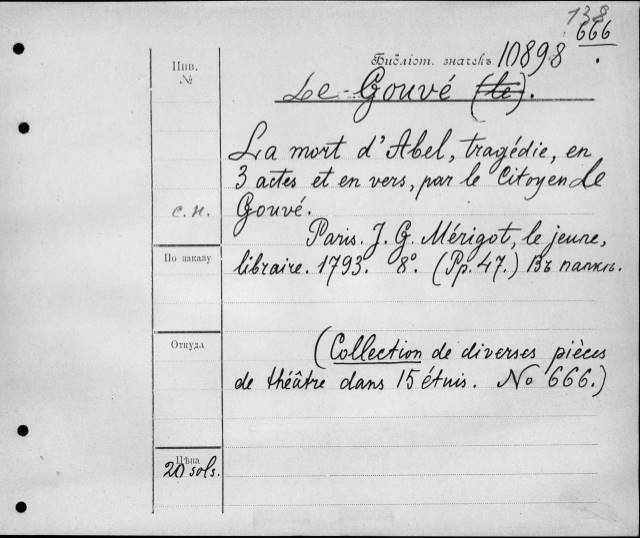 138
666
Инв.
№
Библіот. значекъ 10898
Le-Gouvé (le).
La mort d'Abel, tragédie, en
3 actes et en vers, par le Citoyen Le
с. п. Gouvé.
Paris. J. G. Mérigot, le jeune,
По заказу
libraire. 1793. 8º. (Pp. 47.) Въ папкѣ.
Откуда
(Collection de diverses pièces
de théâtre dans 15 étuis. No 666.)
Цѣна
20 sols.